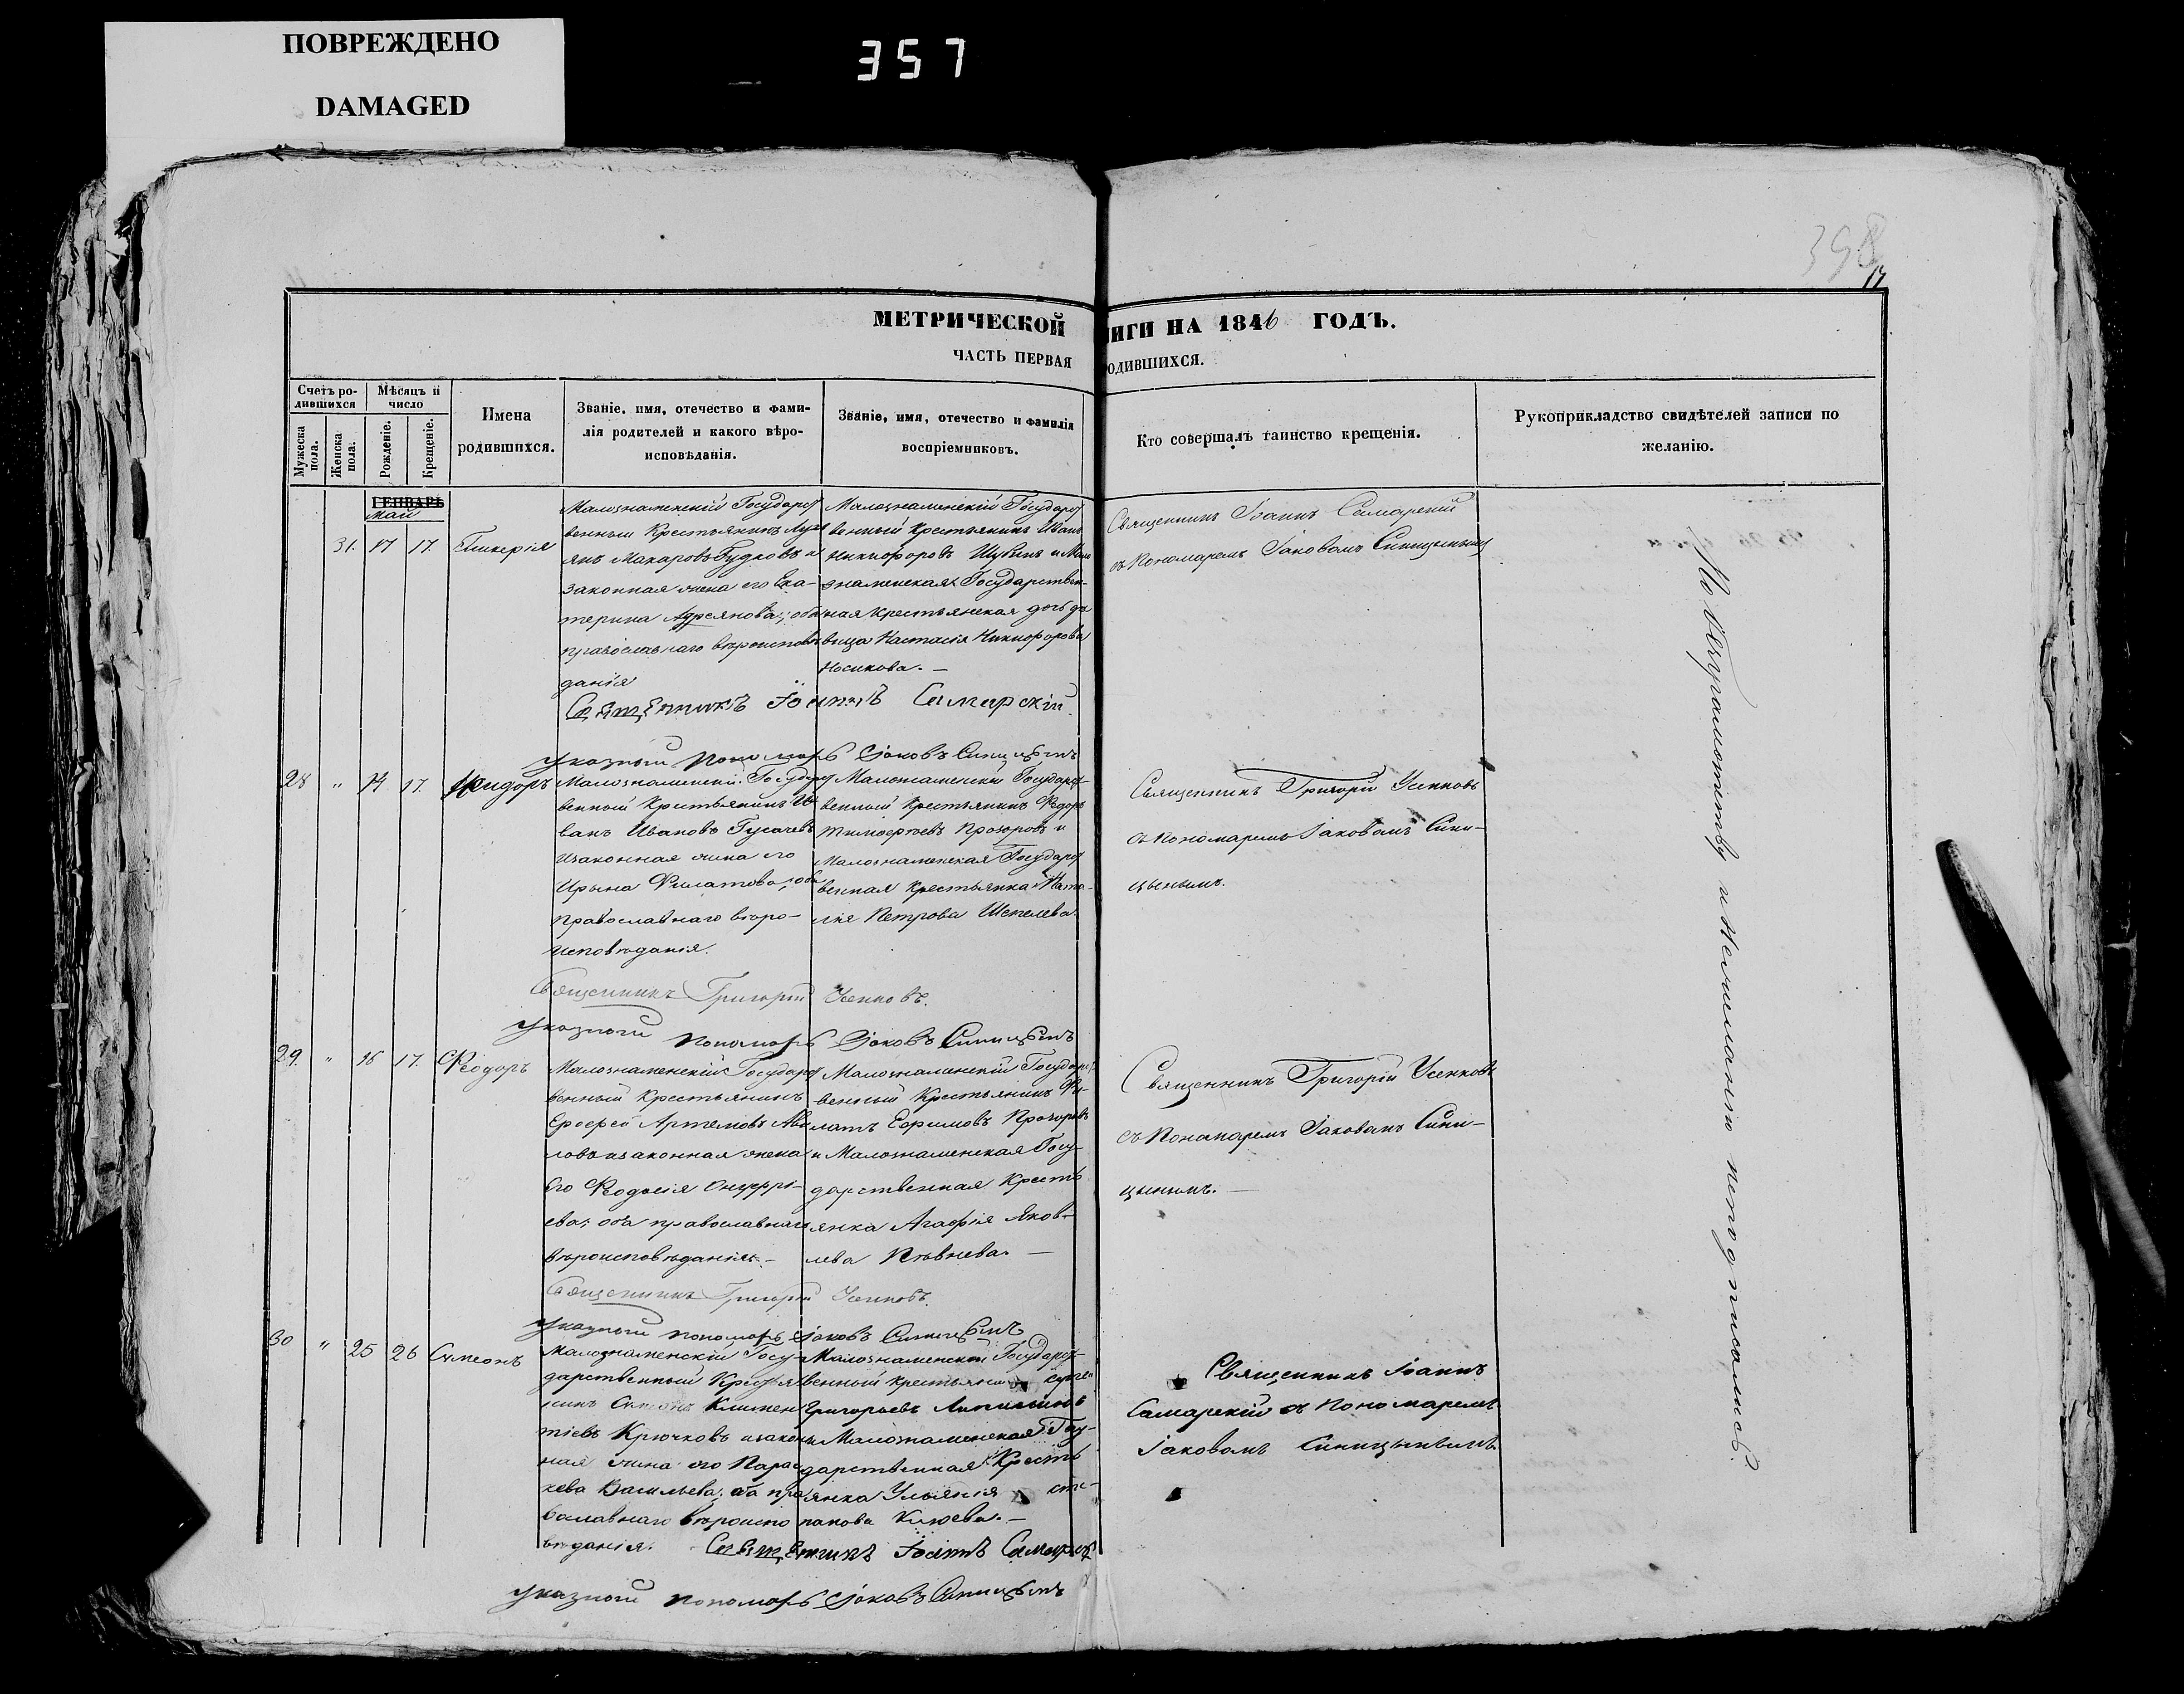 ПОВРЕЖДЕНО
DAMAGED
357
398
17
МЕТРИЧЕСКОЙ
ИГИ НА 1846 ГОДЪ.
ЧАСТЬ ПЕРВАЯ
ОДИВШИХСЯ.
Счетъ ро-
дившихся
Мужеска пола.
Женска пола.
Мѣсяцъ и
число
Рожденіе.
Крещеніе.
Имена
родившихся.
Званіе, имя, отечество и фами-
лія родителей и какого вѣро-
исповѣданія.
Званіе, имя, отечество и фамилія
воспріемниковъ.
Кто совершалъ таинство крещенія.
Рукоприкладство свидѣтелей записи по
желанію.
ГЕНВАРЬ
Май
31. 17 17. Гликерія
Малознаменскій Государст
венный Крестьянинъ
янъ Макаровъ Будковъ и
законная жена его Ека-
терина
православнаго вѣроисповѣ
данія
Малознаменскій Государст
венный Крестьянинъ Иванъ
Никифоровъ Шубинъ и Мало
знаменская Государствен-
ная Крестьянская дочь дѣ
вица Настасія Никифорова
Носикова. —
Священникъ Іоаннъ Самарскій
съ Пономаремъ Іаковомъ Синицынымъ
Священникъ Іоаннъ Самарскій
указный пономарь Іаковъ Синицынъ
28 " 14 17. Исидоръ
Малознаменскій Государст
венный Крестьянинъ И-
ванъ Ивановъ Гусачевъ
изаконная жена его
Ирына Филатова, оба
православнаго вѣро-
исповѣданія.
Малознаменскій Государст-
венный Крестьянинъ Ѳедоръ
Тимоѳеевъ Прозоровъ и
Малознаменская Государст
венная Крестьянка Ната-
лія Петрова Шепелева.
Священникъ Григорій Усенковъ
съ Пономаремъ Іаковомъ Сини-
цынымъ.
Священникъ Григорій Усенковъ.
указный пономарь Іаковъ Синицынъ
29. " 16 17. Ѳеодоръ
Малознаменскій Государст
венный Крестьянинъ
Ероѳей Артемовъ
ловъ изаконная жена
его Ѳедосія Онуфрі-
ева, оба православнаго
вѣроисповѣданія. —
Малознаменскій Государст
венный Крестьянинъ Фи-
латъ Ефимовъ Прозоровъ
и Малознаменская Госу-
дарственная Кресть
янка Агафія Яков-
лева Пѣвнева. —
Священникъ Григорій Усенковъ
съ Пономаремъ Іаковомъ Сини-
цынымъ. —
Священникъ Григорій Усенковъ.
указный пономарь Іаковъ Синицынъ
30 " 25 26 Симеонъ
Малознаменскій Госу-
дарственный Крестья
нинъ Климен
тіевъ Крючковъ изакон
ная жена его Парас
кева Васильева, оба пра
вославнаго вѣроиспо
вѣданія.
Малознаменской Государст-
венный Крестьянинъ
Григорьевъ
и Малознаменская Госу-
дарственная Кресть
янка Ульянія сте-
панова Клюева. —
Священникъ Іоаннъ
Самарскій съ Пономаремъ
Іаковомъ Синицынымъ
Священникъ Іоаннъ Самарскій
указный пономарь Іаковъ Синицынъ